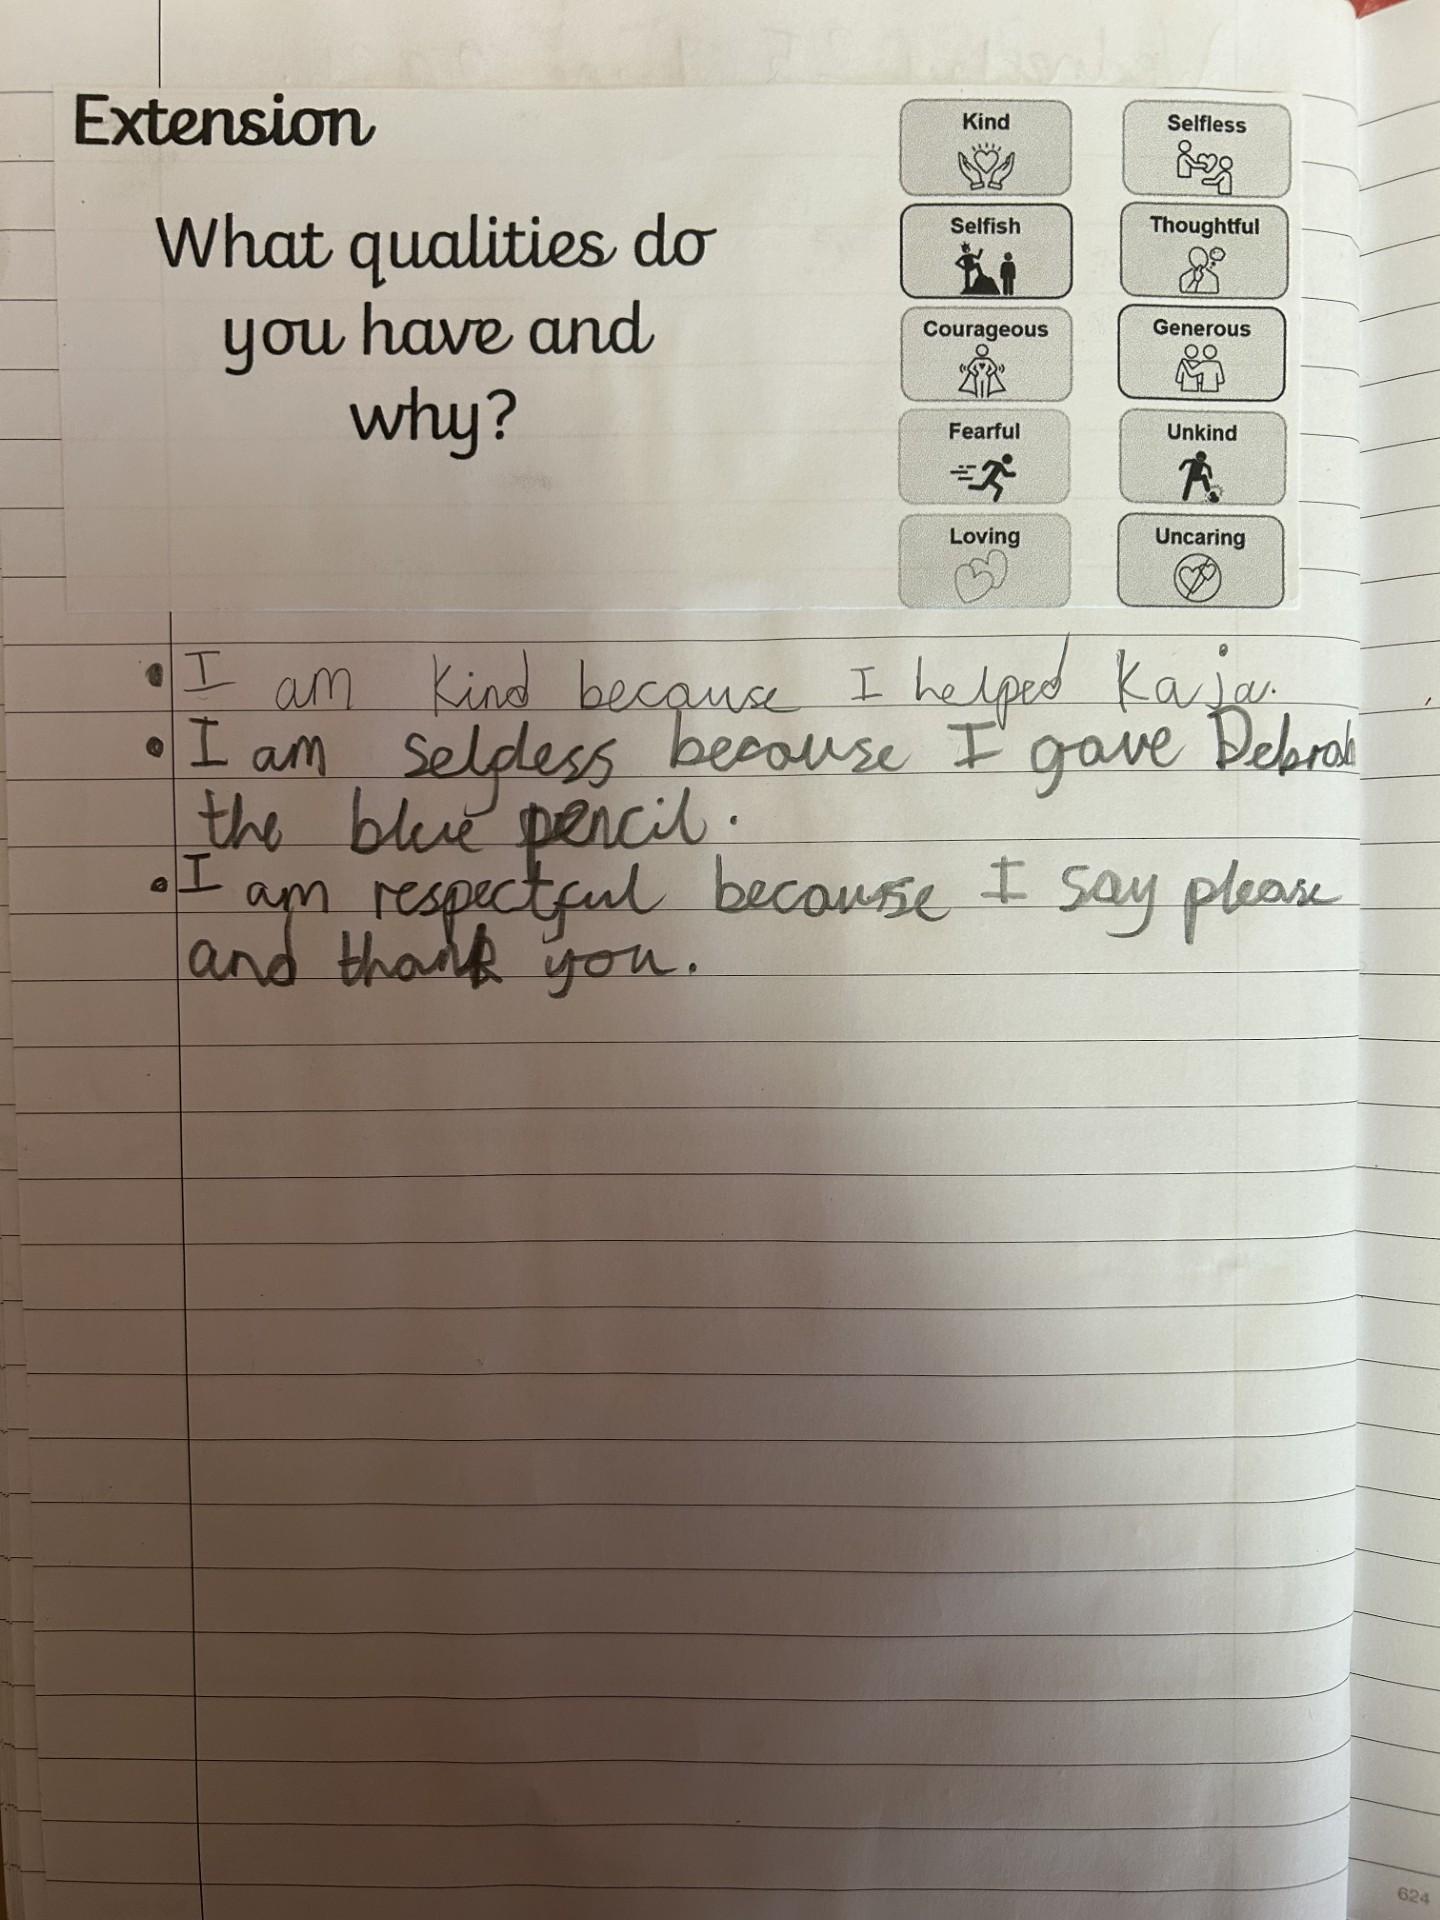 Extension
What qualities do
you have and
why?
Kind
Selfless
Selfish
Thoughtful
Courageous
Generous
Fearful
Unkind
Loving
Uncaring
• I am kind because I helped Kaja.
• I am selfless because I gave Debrah
the blue pencil.
• I am respectful because I say please
and thank you.
624